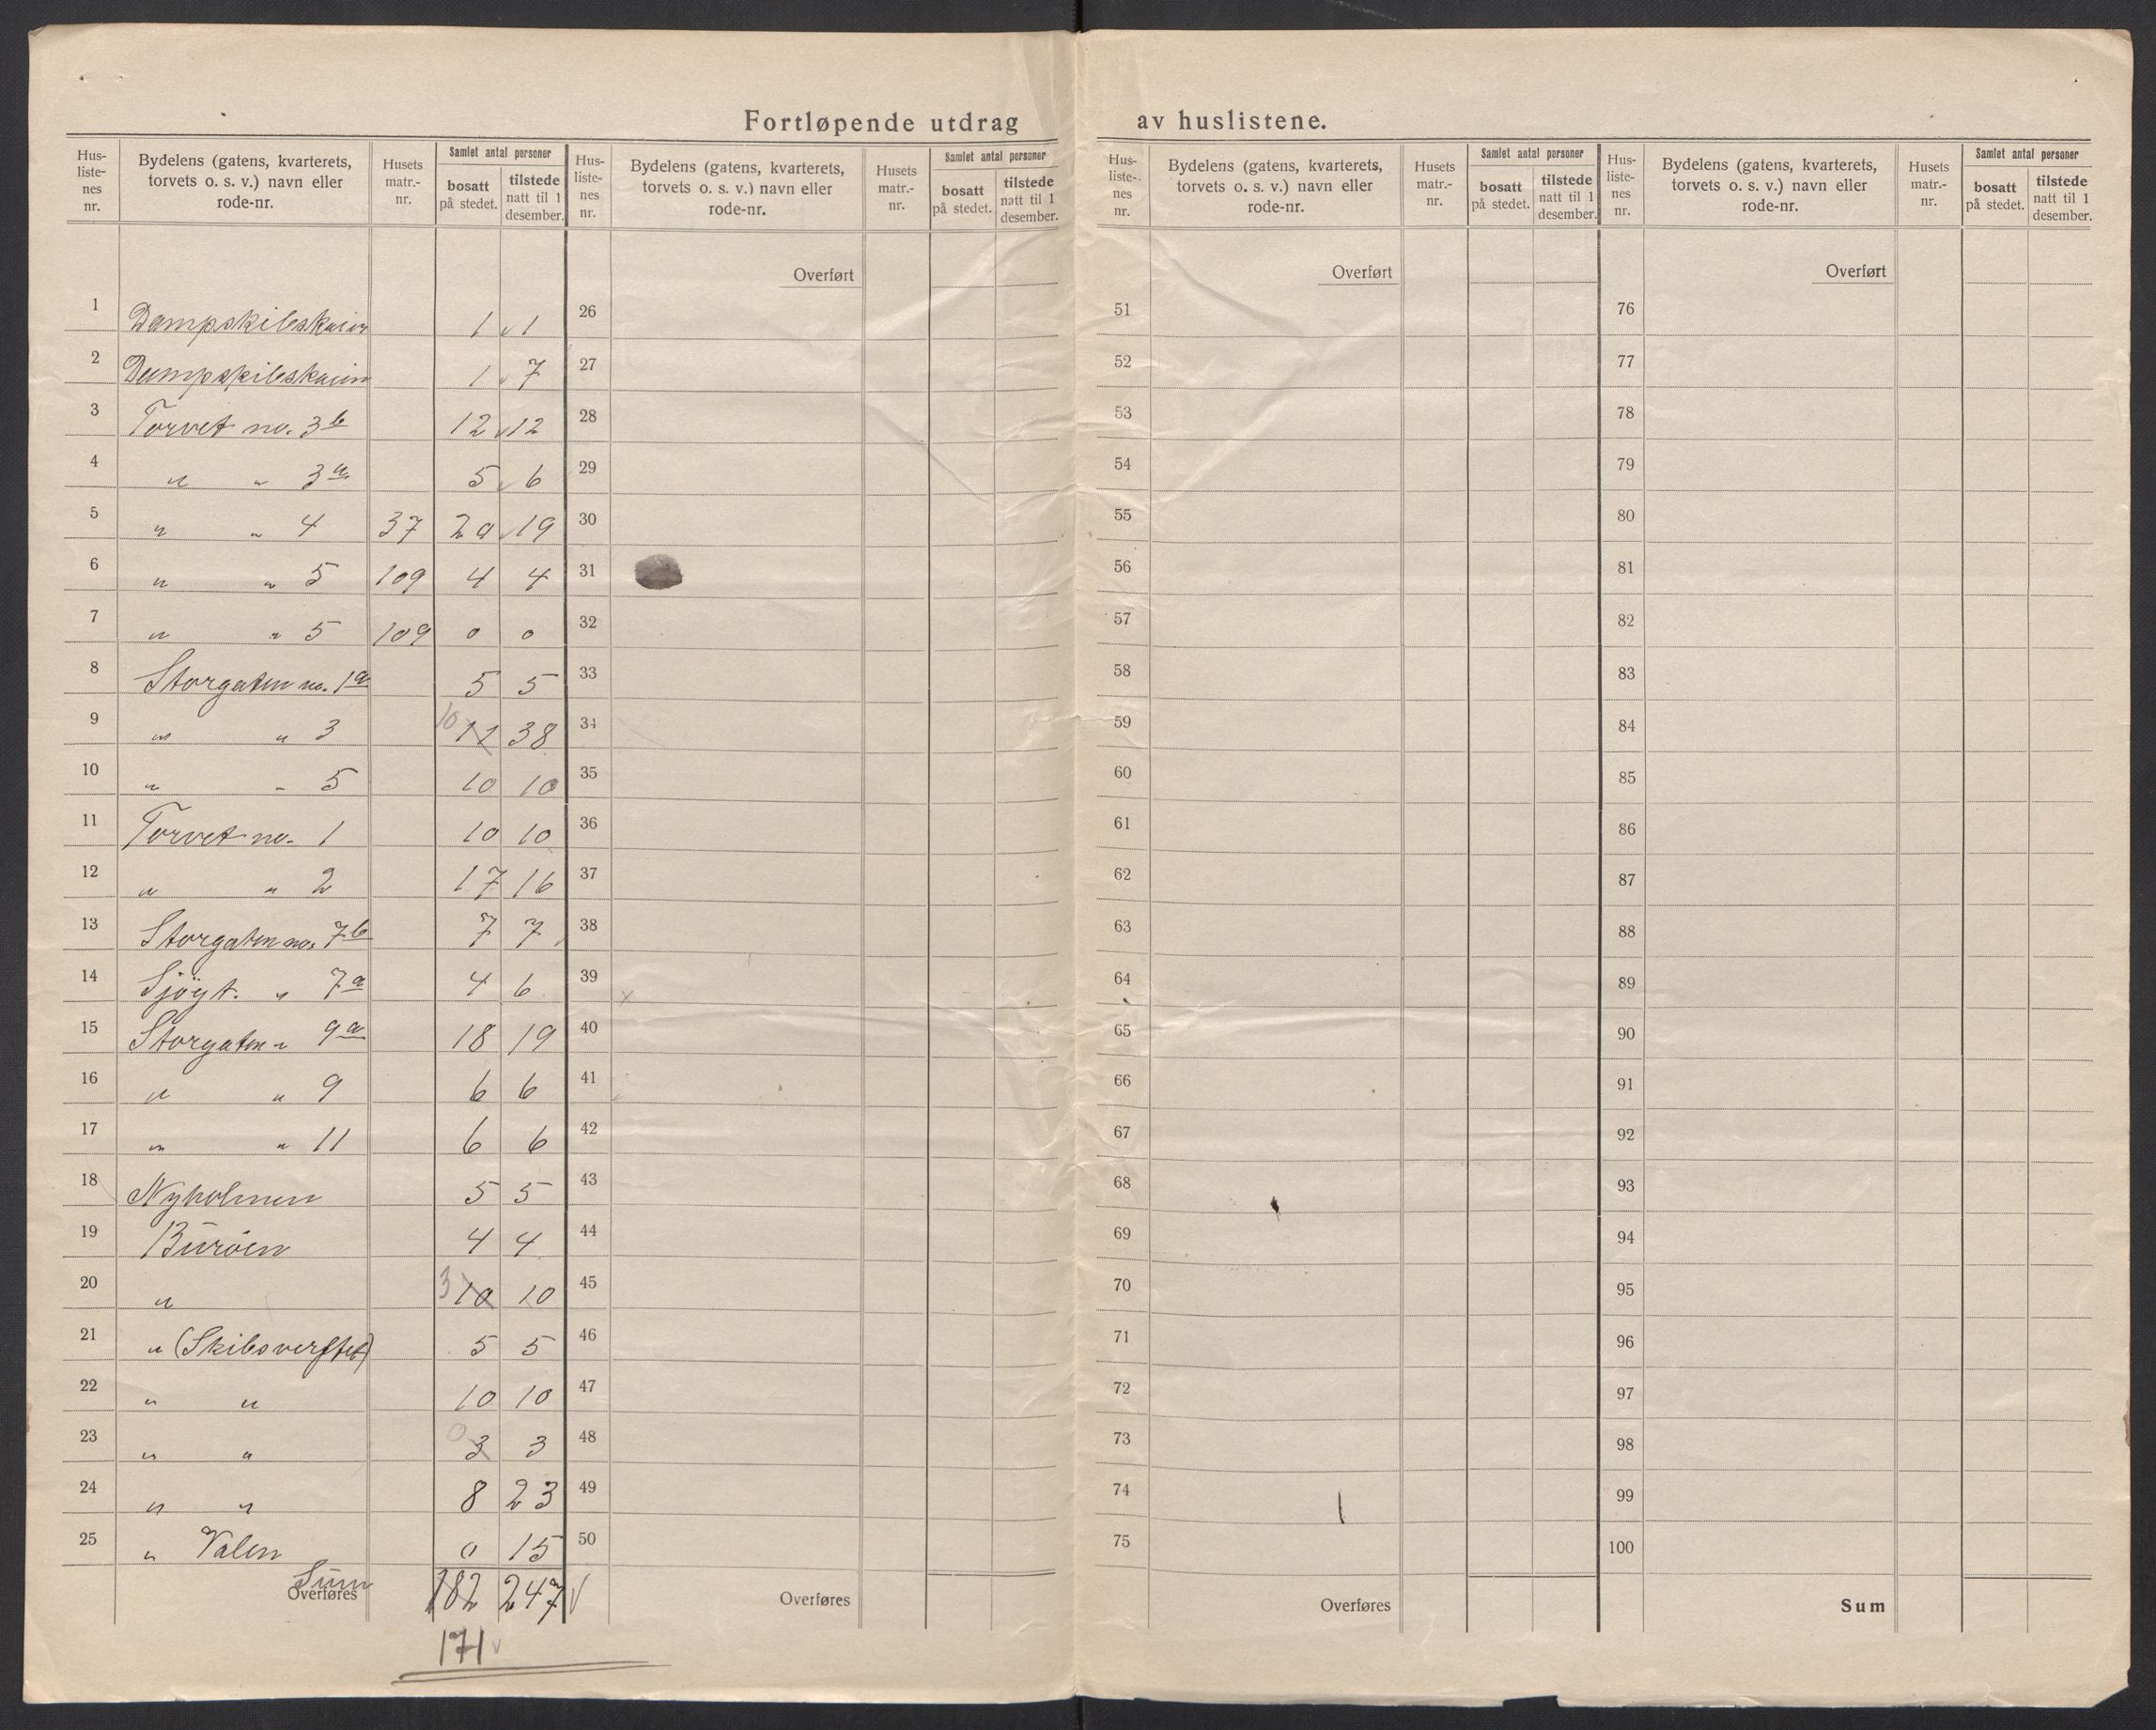 Fortløpende utdrag av huslistene.
Hus-liste-nes nr. | Bydelens (gatens, kvarterets, torvets o. s. v.) navn eller rode-nr. | Husets matr.-nr. | Samlet antal personer | bosatt på stedet. | tilstede natt til 1 desember.
Hus-liste-nes nr. | Bydelens (gatens, kvarterets, torvets o. s. v.) navn eller rode-nr. | Husets matr.-nr. | Samlet antal personer | bosatt på stedet. | tilstede natt til 1 desember.
Hus-liste-nes nr. | Bydelens (gatens, kvarterets, torvets o. s. v.) navn eller rode-nr. | Husets matr.-nr. | Samlet antal personer | bosatt på stedet. | tilstede natt til 1 desember.
Hus-liste-nes nr. | Bydelens (gatens, kvarterets, torvets o. s. v.) navn eller rode-nr. | Husets matr.-nr. | Samlet antal personer | bosatt på stedet. | tilstede natt til 1 desember.
Overført Overført Overført
1 Dampskibskaien 1 √ 1 26 51 76
2 Dampskibskaien 1 √ 7 27 52 77
3 Torvet no. 3b 12 √ 12 28 53 78
4 " " 3a 5 √ 6 29 54 79
5 " " 4 37 20 √ 19 30 55 80
6 " " 5 109 4 4 31 56 81
7 " " 5 109 0 0 32 57 82
8 Storgaten no. 1a 5 5 33 58 83
9 " " 3 10 11 38 34 59 84
10 " " 5 10 10 35 60 85
11 Torvet no. 1 10 10 36 61 86
12 " " 2 17 16 37 62 87
13 Storgaten no. 7b 7 7 38 63 88
14 Sjøgt. " 7a 4 6 39 64 89
15 Storgaten " 9a 18 19 40 65 90
16 " " 9 6 6 41 66 91
17 " " 11 6 6 42 67 92
18 Nyholmen 5 5 43 68 93
19 Burøen 4 4 44 69 94
20 " 3 10 10 45 70 95
21 " (Skibsverftet) 5 5 46 71 96
22 " " 10 10 47 72 97
23 " " 0 3 3 48 73 98
24 " " 8 23 49 74 99
25 " Valen 0 15 50 75 100
Sum
Overføres 182 247 √ Overføres Overføres Sum
171 √